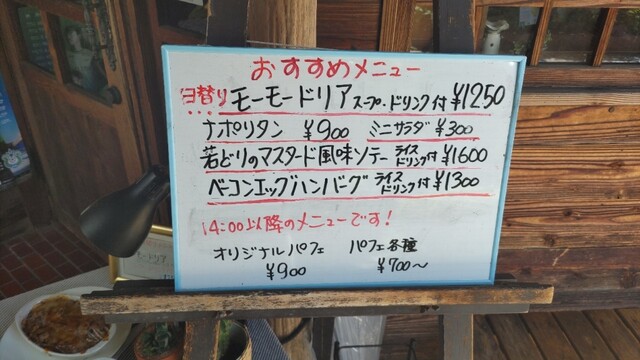 おすすめメニュー
日替り モーモードリア スープ・ドリンク付 ¥1250
ナポリタン ¥900 ミニサラダ ¥300
若どりのマスタード風味ソテー ライスドリンク付 ¥1600
ベーコンエッグハンバーグ ライスドリンク付 ¥1300
14:00以降のメニューです!
オリジナルパフェ パフェ各種
¥900 ¥700〜